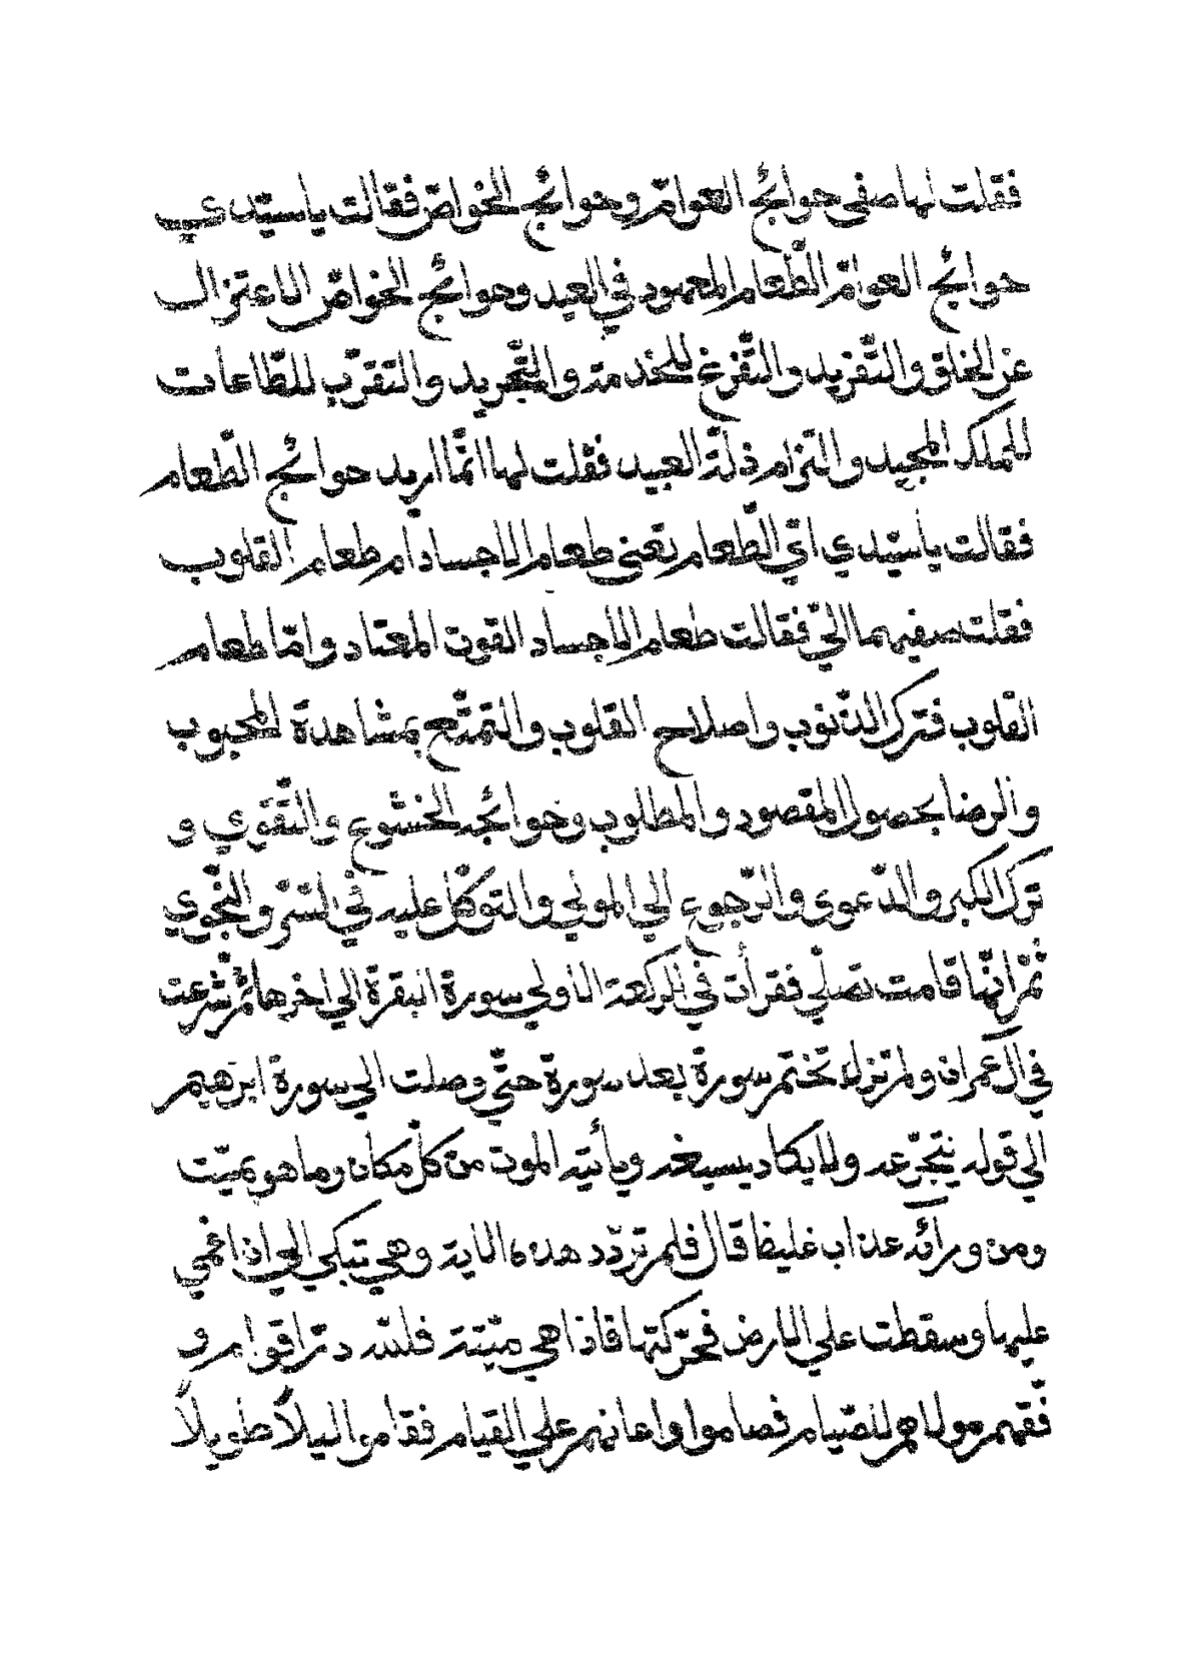 فقلت لها صفى حوائج العوامّ وحوائج الخواصّ فقالت يا سيّدي
حوائج العوامّ الطّعام المعهود في العيد وحوائج الخواصّ الاعتزال
عن الخلق والتّفريد والتّفرّغ للخدمة والتّجريد والتقرّب للطّاعات
للملك المجيد والتزام ذلّة العبيد فقلت لها انّما اريد حوائج الطّعام
فقالت يا سيّدي ايّ الطّعام تعنى طعام الاجساد ام طعام القلوب
فقلت صفيهما اليّ فقالت طعام الاجساد القوت المعتاد وامّا طعام
القلوب فترك الذّنوب واصلاح القلوب والتمتّع بمشاهدة المحبوب
والرضا بحصول المقصود والمطلوب وحوائجه الخشوع والتّقوي و
ترك الكبر والدّعوى والرّجوع الي المولي والتوكّل عليه في السّر والنّجوي
ثمّ انّها قامت تصلّي فقرأت في الركعة الاولي سورة البقرة الي اخرها ثمّ شرعت
في آل عمران ولم تزل تختم سورة بعد سورة حتّي وصلت الي سورة ابرهيم
الي قوله يتجرّعه ولا يكاد يسيغه ويأتيه الموت من كلّ مكان وما هو بميّت
ومن ورآئه عذاب غليظ قال فلم تردّد هذه الاية وهي تبكي الي ان اغمي
عليها وسقطت علي الارض فحرّكتها فاذا هي ميّتة فلله درّ اقوام و
فّقهم مولاهم للصّيام فصاموا واعانهم علي القيام فقاموا ليلاً طويلاً